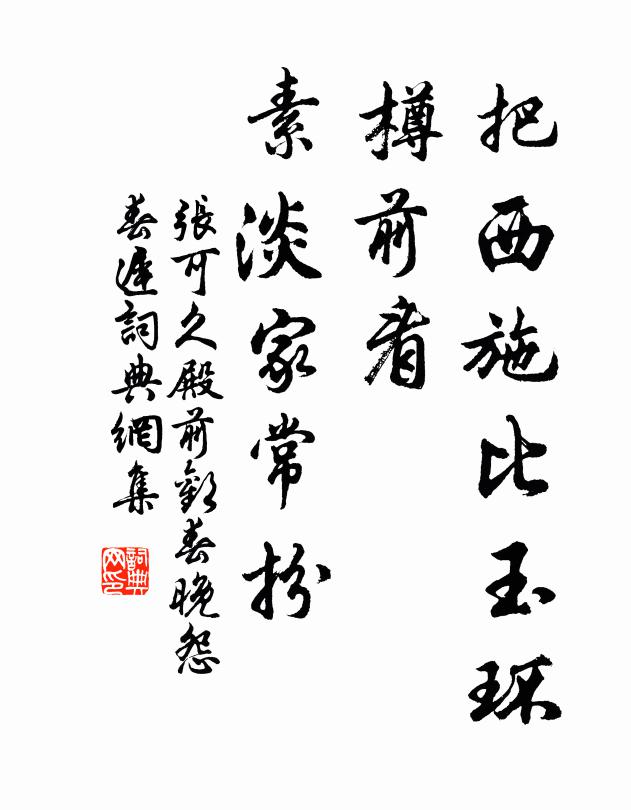 把西施比玉环
樽前看
素淡家常扮
張可久殿前歡春晚怨
春遲詞典網集
詞典网印